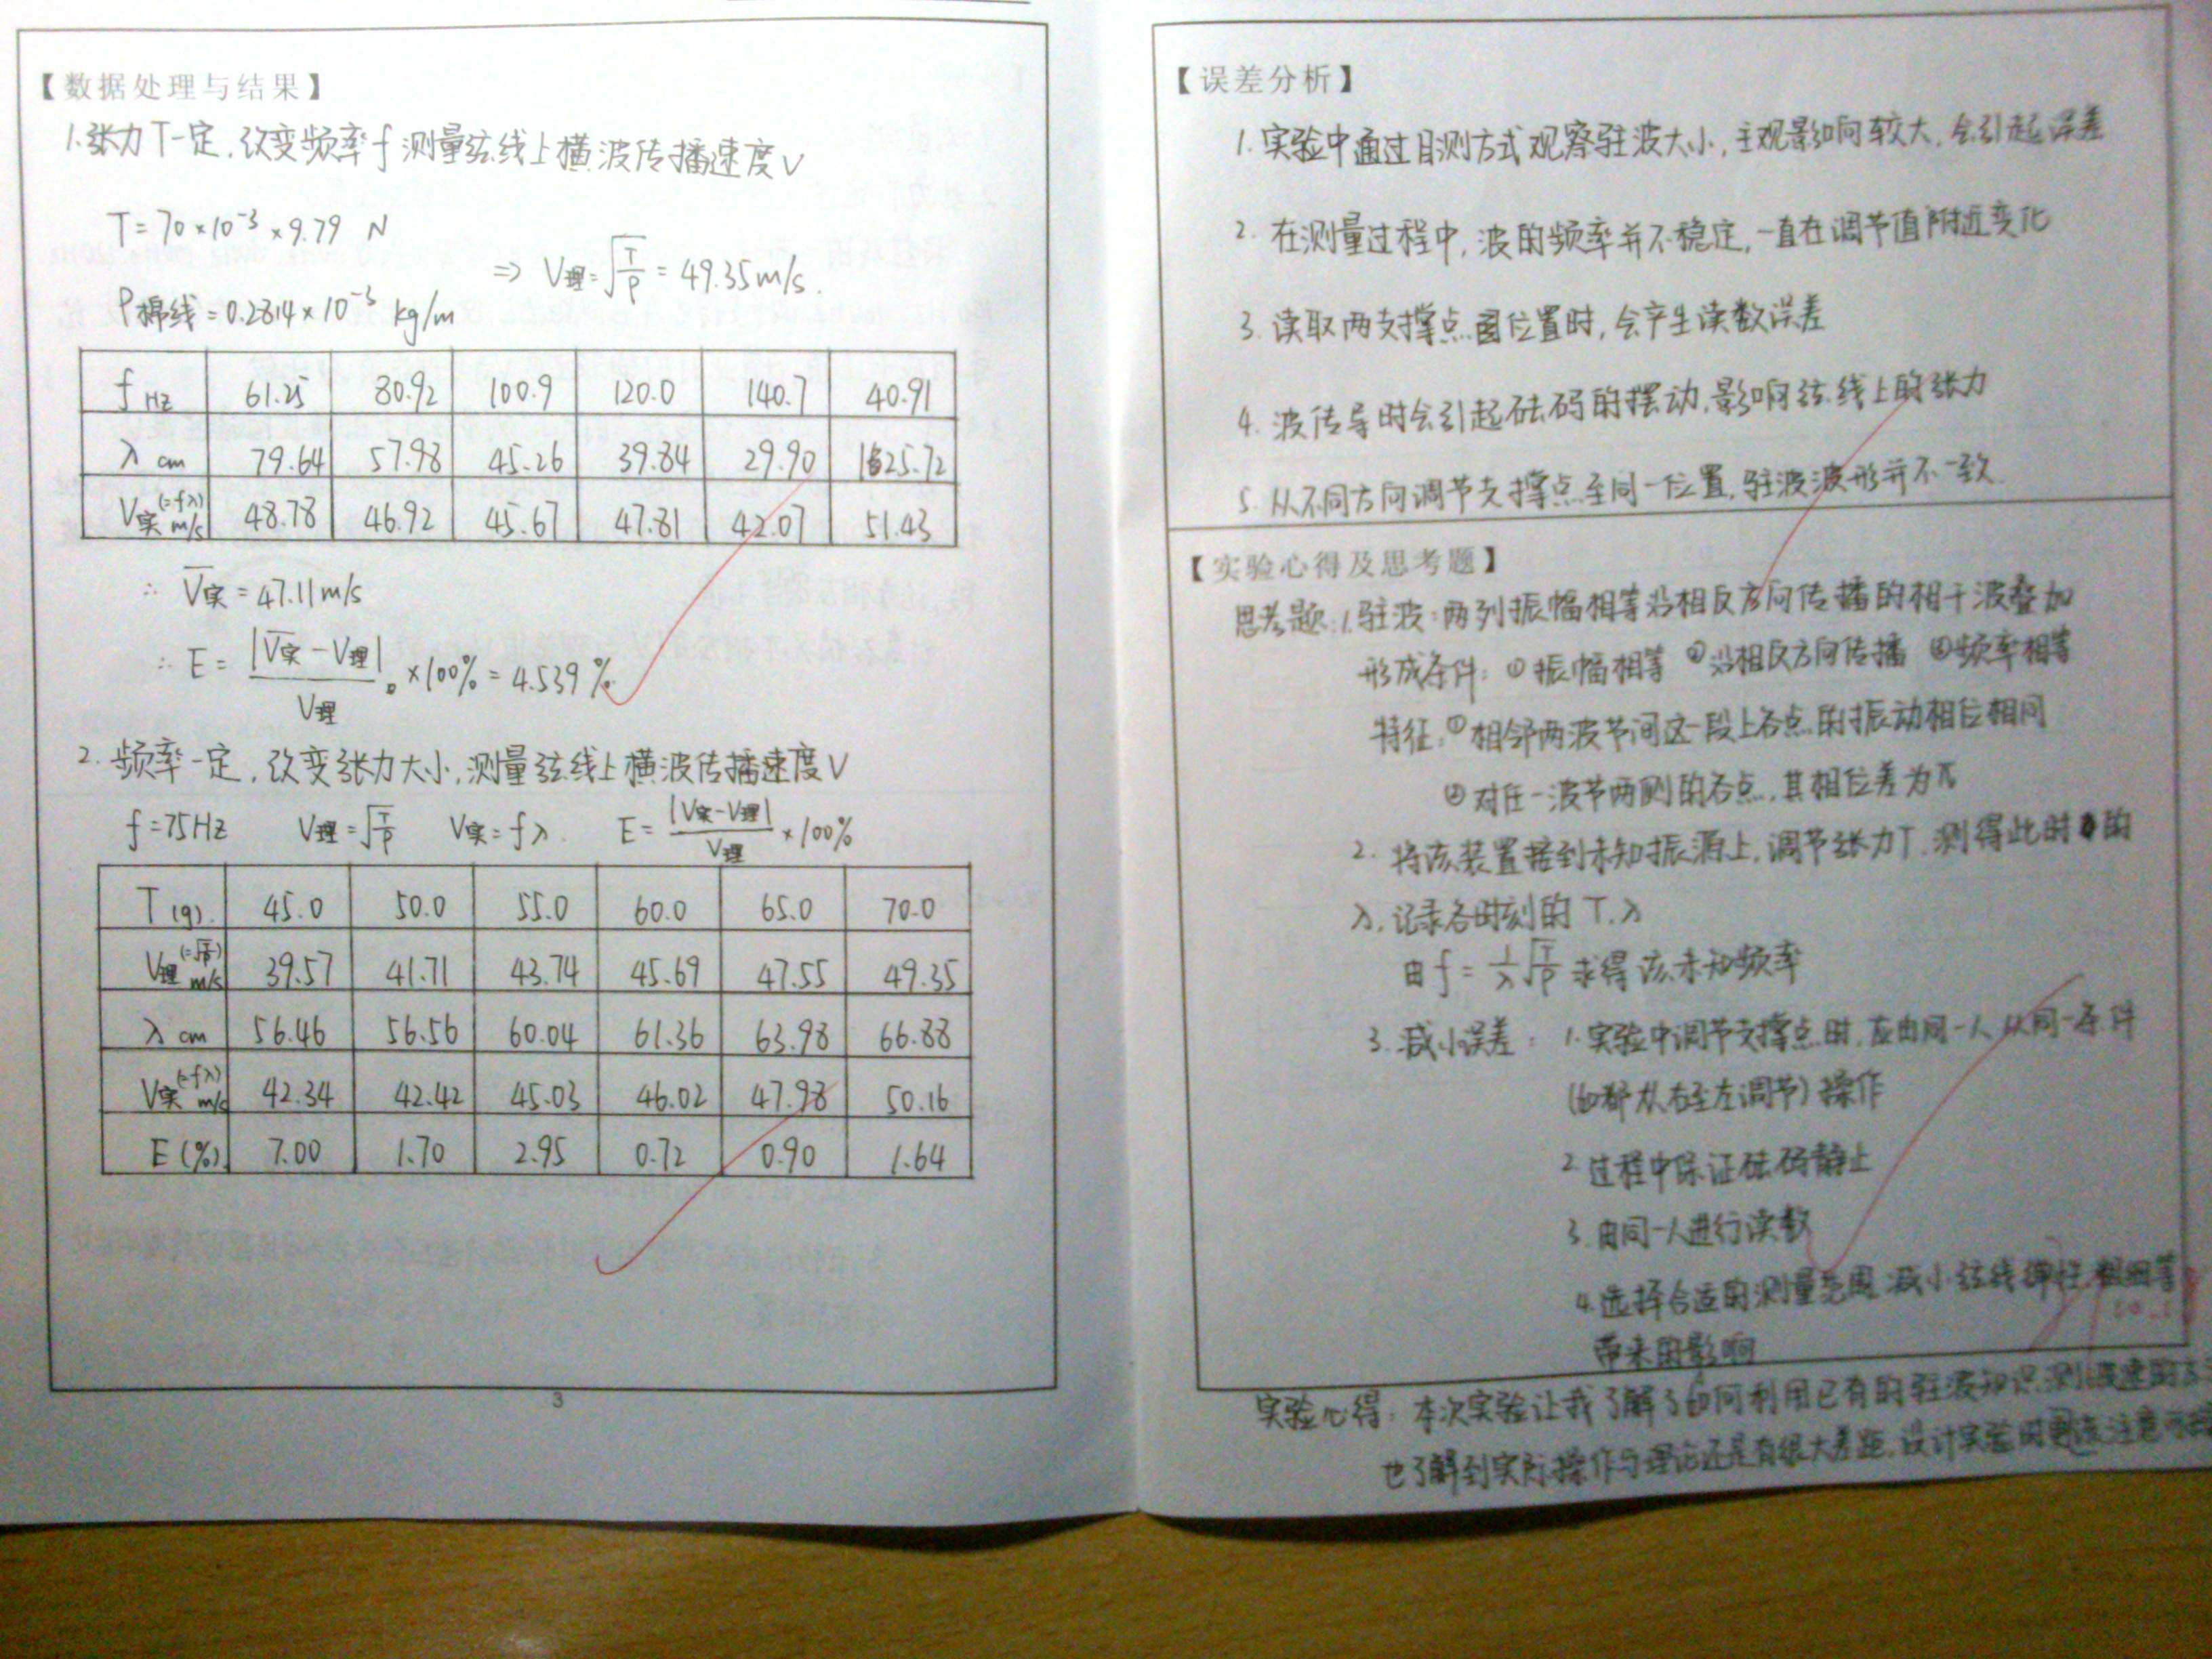 【数据处理与结果】
1.张力T一定,改变频率f测量弦线上横波传播速度V
T=70×10⁻³×9.79 N
ρ棉线=0.2814×10⁻³ kg/m ⇒ V理=√(T/ρ)=49.35m/s.
f Hz 61.25 80.92 100.9 120.0 140.7 40.91
λ cm 79.64 57.98 45.26 39.84 29.90 125.72
V实(=fλ) m/s 48.78 46.92 45.67 47.81 42.07 51.43
∴ V̅实=47.11m/s
∴ E=|V̅实-V理|/V理×100%=4.539%.
2.频率一定,改变张力大小,测量弦线上横波传播速度V
f=75Hz V理=√(T/ρ) V实=fλ. E=|V实-V理|/V理×100%
T(g). 45.0 50.0 55.0 60.0 65.0 70.0
V理(=√(T/ρ)) m/s 39.57 41.71 43.74 45.69 47.55 49.35
λ cm 56.46 56.56 60.04 61.36 63.98 66.88
V实(=fλ) m/s 42.34 42.42 45.03 46.02 47.98 50.16
E(%) 7.00 1.70 2.95 0.72 0.90 1.64
3
【误差分析】
1.实验中通过目测方式观察驻波大小,主观影响较大,会引起误差
2.在测量过程中,波的频率并不稳定,一直在调节值附近变化
3.读取两支撑点位置时,会产生读数误差
4.波传导时会引起砝码的摆动,影响弦线上的张力
5.从不同方向调节支撑点至同一位置,驻波波形并不一致.
【实验心得及思考题】
思考题:1.驻波:两列振幅相等沿相反方向传播的相干波叠加
形成条件:①振幅相等 ②沿相反方向传播 ③频率相等
特征:①相邻两波节间这一段上各点的振动相位相同
②对任一波节两侧的各点,其相位差为π
2.将该装置接到未知振源上,调节张力T.测得此时的
λ,记录各时刻的T.λ
由f=1/λ√(T/ρ)求得该未知频率
3.减小误差:1.实验中调节支撑点时,应由同一人从同一条件
(都从右至左调节)操作
2.过程中保证砝码静止
3.由同一人进行读数
4.选择合适的测量范围,减小弦线弹性、粗细等
带来的影响
实验心得:本次实验让我了解了如何利用已有的驻波知识测波速的
也了解到实际操作与理论还是有很大差距,设计实验间更该注意